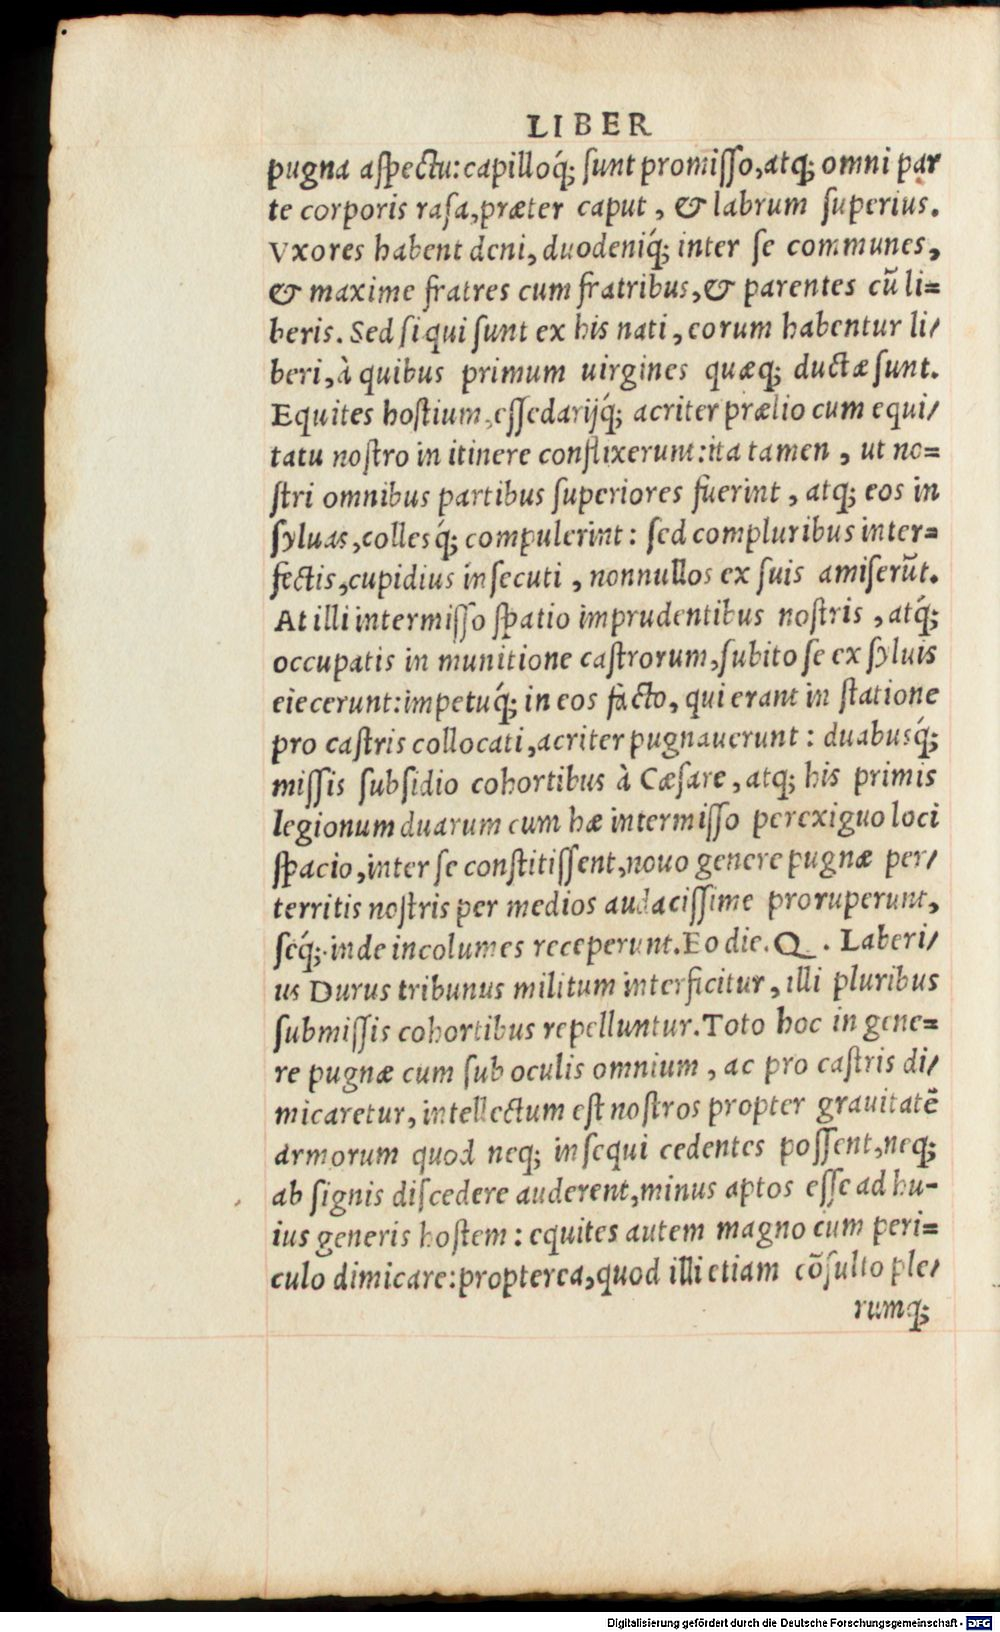 LIBER
pugna aſpectu: capilloq́; ſunt promiſſo, atq; omni par
te corporis raſa, præter caput, & labrum ſuperius.
Vxores habent deni, duodeniq́; inter ſe communes,
& maxime fratres cum fratribus, & parentes cũ li=
beris. Sed ſi qui ſunt ex his nati, eorum habentur li/
beri, à quibus primum uirgines quæq; ductæ ſunt.
Equites hoſtium, eſſedarijq́; acriter prælio cum equi/
tatu noſtro in itinere conflixerunt: ita tamen, ut no=
ſtri omnibus partibus ſuperiores fuerint, atq; eos in
ſyluas, collesq́; compulerint: ſed compluribus inter=
fectis, cupidius inſecuti, nonnullos ex ſuis amiſerũt.
At illi intermiſſo ſpatio imprudentibus noſtris, atq́;
occupatis in munitione caſtrorum, ſubito ſe ex ſyluis
eiecerunt: impetuq́; in eos facto, qui erant in ſtatione
pro caſtris collocati, acriter pugnauerunt: duabusq́;
miſſis ſubſidio cohortibus à Cæſare, atq; his primis
legionum duarum cum hæ intermiſſo perexiguo loci
ſpacio, inter ſe conſtitiſſent, nouo genere pugnæ per/
territis noſtris per medios audaciſſime proruperunt,
ſeq́; inde incolumes receperunt. Eo die. Q. Laberi/
us Durus tribunus militum interficitur, illi pluribus
ſubmiſſis cohortibus repelluntur. Toto hoc in gene=
re pugnæ cum ſub oculis omnium, ac pro caſtris di/
micaretur, intellectum eſt noſtros propter grauitatẽ
armorum quod neq; inſequi cedentes poſſent, neq;
ab ſignis diſcedere auderent, minus aptos eſſe ad hu-
ius generis hoſtem: equites autem magno cum peri=
culo dimicare: propterea, quod illi etiam cõſulto ple/
rumq;
Digitalisierung gefördert durch die Deutsche Forschungsgemeinschaft - DFG